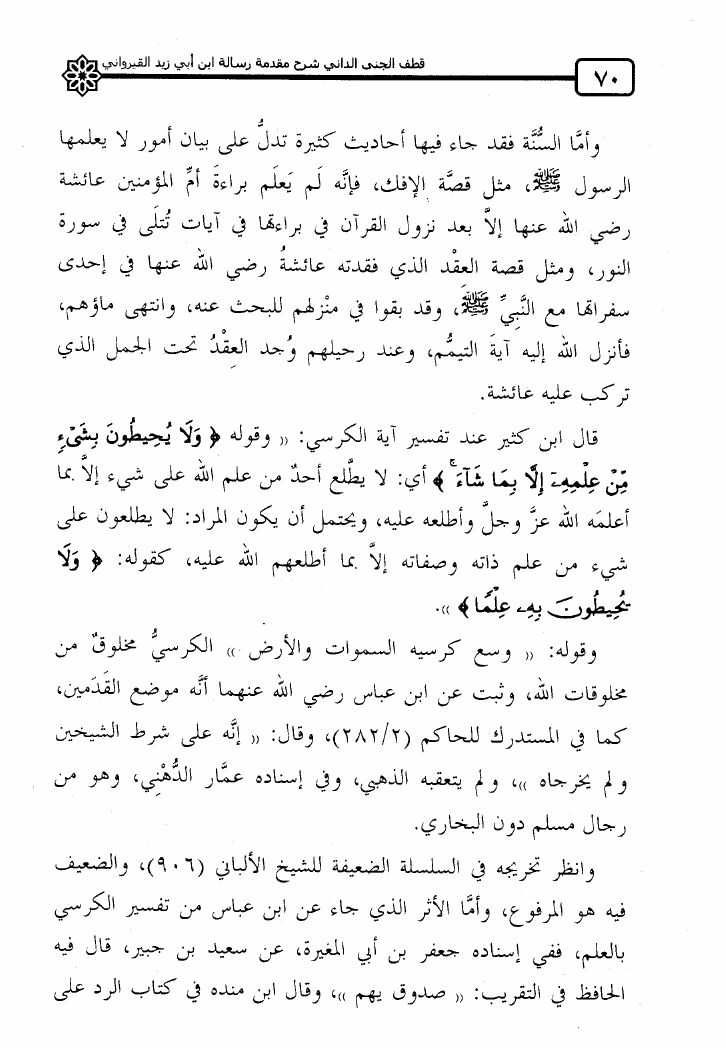 قطف الجنى الداني شرح مقدمة رسالة ابن أبي زيد القيرواني
٧٠
وأمَّا السُّنَّة فقد جاء فيها أحاديث كثيرة تدلُّ على بيان أمور لا يعلمها
الرسول ﷺ، مثل قصَّة الإفك، فإنَّه لَم يَعلَم براءةَ أمِّ المؤمنين عائشة
رضي الله عنها إلاَّ بعد نزول القرآن في براءتها في آيات تُتلَى في سورة
النور، ومثل قصة العقْد الذي فقدته عائشةُ رضي الله عنها في إحدى
سفراتها مع النَّبِيِّ ﷺ، وقد بقوا في منْزلهم للبحث عنه، وانتهى ماؤهم،
فأنزل الله إليه آيةَ التيمُّم، وعند رحيلهم وُجد العِقْدُ تحت الجمل الذي
تركب عليه عائشة.
قال ابن كثير عند تفسير آية الكرسي: (( وقوله ﴿ وَلَا يُحِيطُونَ بِشَىْءٍ
مِّنْ عِلْمِهِۦٓ إِلَّا بِمَا شَآءَ ۚ ﴾ أي: لا يطَّلع أحدٌ من علم الله على شيء إلاَّ بما
أعلمَه الله عزَّ وجلَّ وأطلعه عليه، ويحتمل أن يكون المراد: لا يطلعون على
شيء من علم ذاته وصفاته إلاَّ بما أطلعهم الله عليه، كقوله: ﴿ وَلَا
يُحِيطُونَ بِهِۦ عِلْمًا ﴾ )).
وقوله: (( وسع كرسيه السموات والأرض )) الكرسيُّ مخلوقٌ من
مخلوقات الله، وثبت عن ابن عباس رضي الله عنهما أنَّه موضع القَدَمين،
كما في المستدرك للحاكم (٢٨٢/٢)، وقال: (( إنَّه على شرط الشيخين
ولم يخرجاه ))، ولم يتعقبه الذهبي، وفي إسناده عمَّار الدُّهْنِي، وهو من
رجال مسلم دون البخاري.
وانظر تخريجه في السلسلة الضعيفة للشيخ الألباني (٩٠٦)، والضعيف
فيه هو المرفوع، وأمَّا الأثر الذي جاء عن ابن عباس من تفسير الكرسي
بالعلم، ففي إسناده جعفر بن أبي المغيرة، عن سعيد بن جبير، قال فيه
الحافظ في التقريب: (( صدوق يهم ))، وقال ابن منده في كتاب الرد على